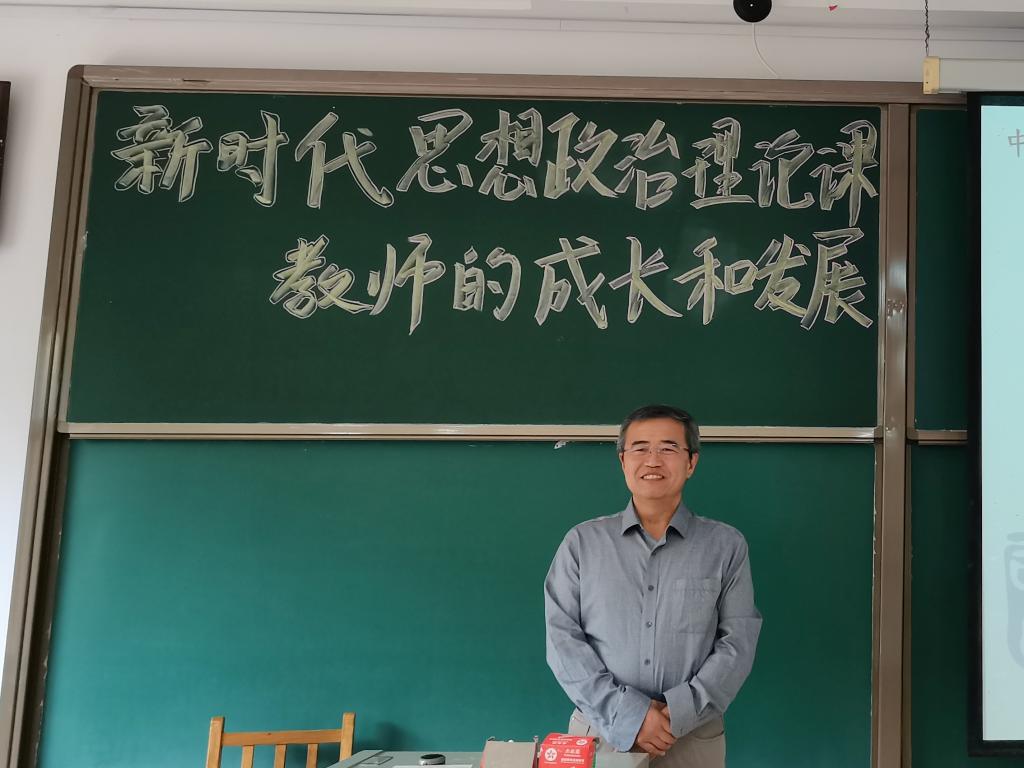 新时代思想政治理论课
教师的成长和发展
中